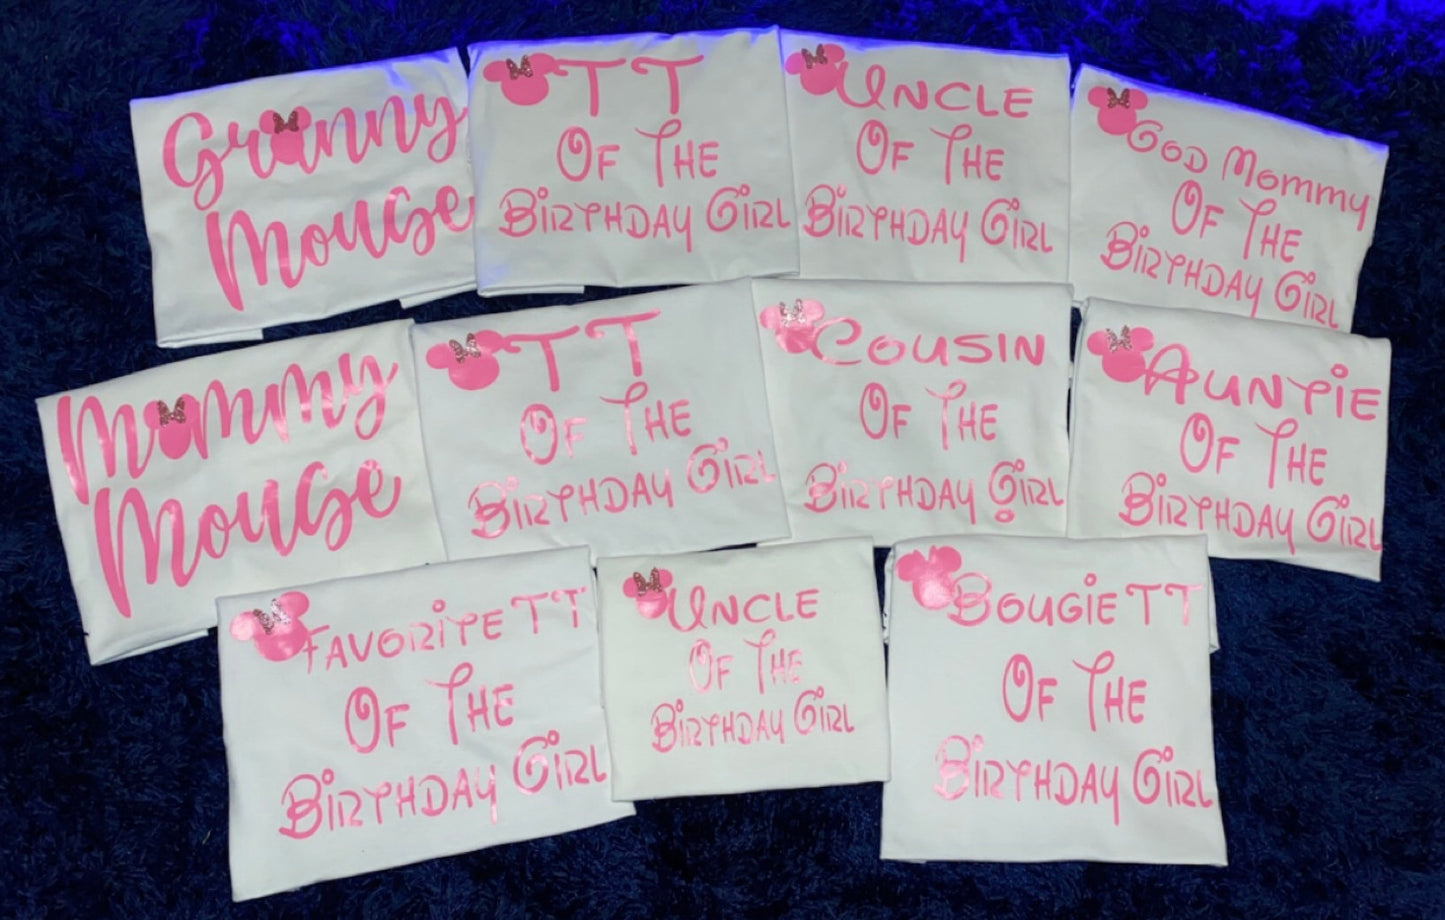 Granny
Mouse
TT
Of The
Birthday Girl
Uncle
Of The
Birthday Girl
God Mommy
Of The
Birthday Girl
Mommy
Mouse
TT
Of The
Birthday Girl
Cousin
Of The
Birthday Girl
Auntie
Of The
Birthday Girl
Favorite TT
Of The
Birthday Girl
Uncle
Of The
Birthday Girl
Bougie TT
Of The
Birthday Girl